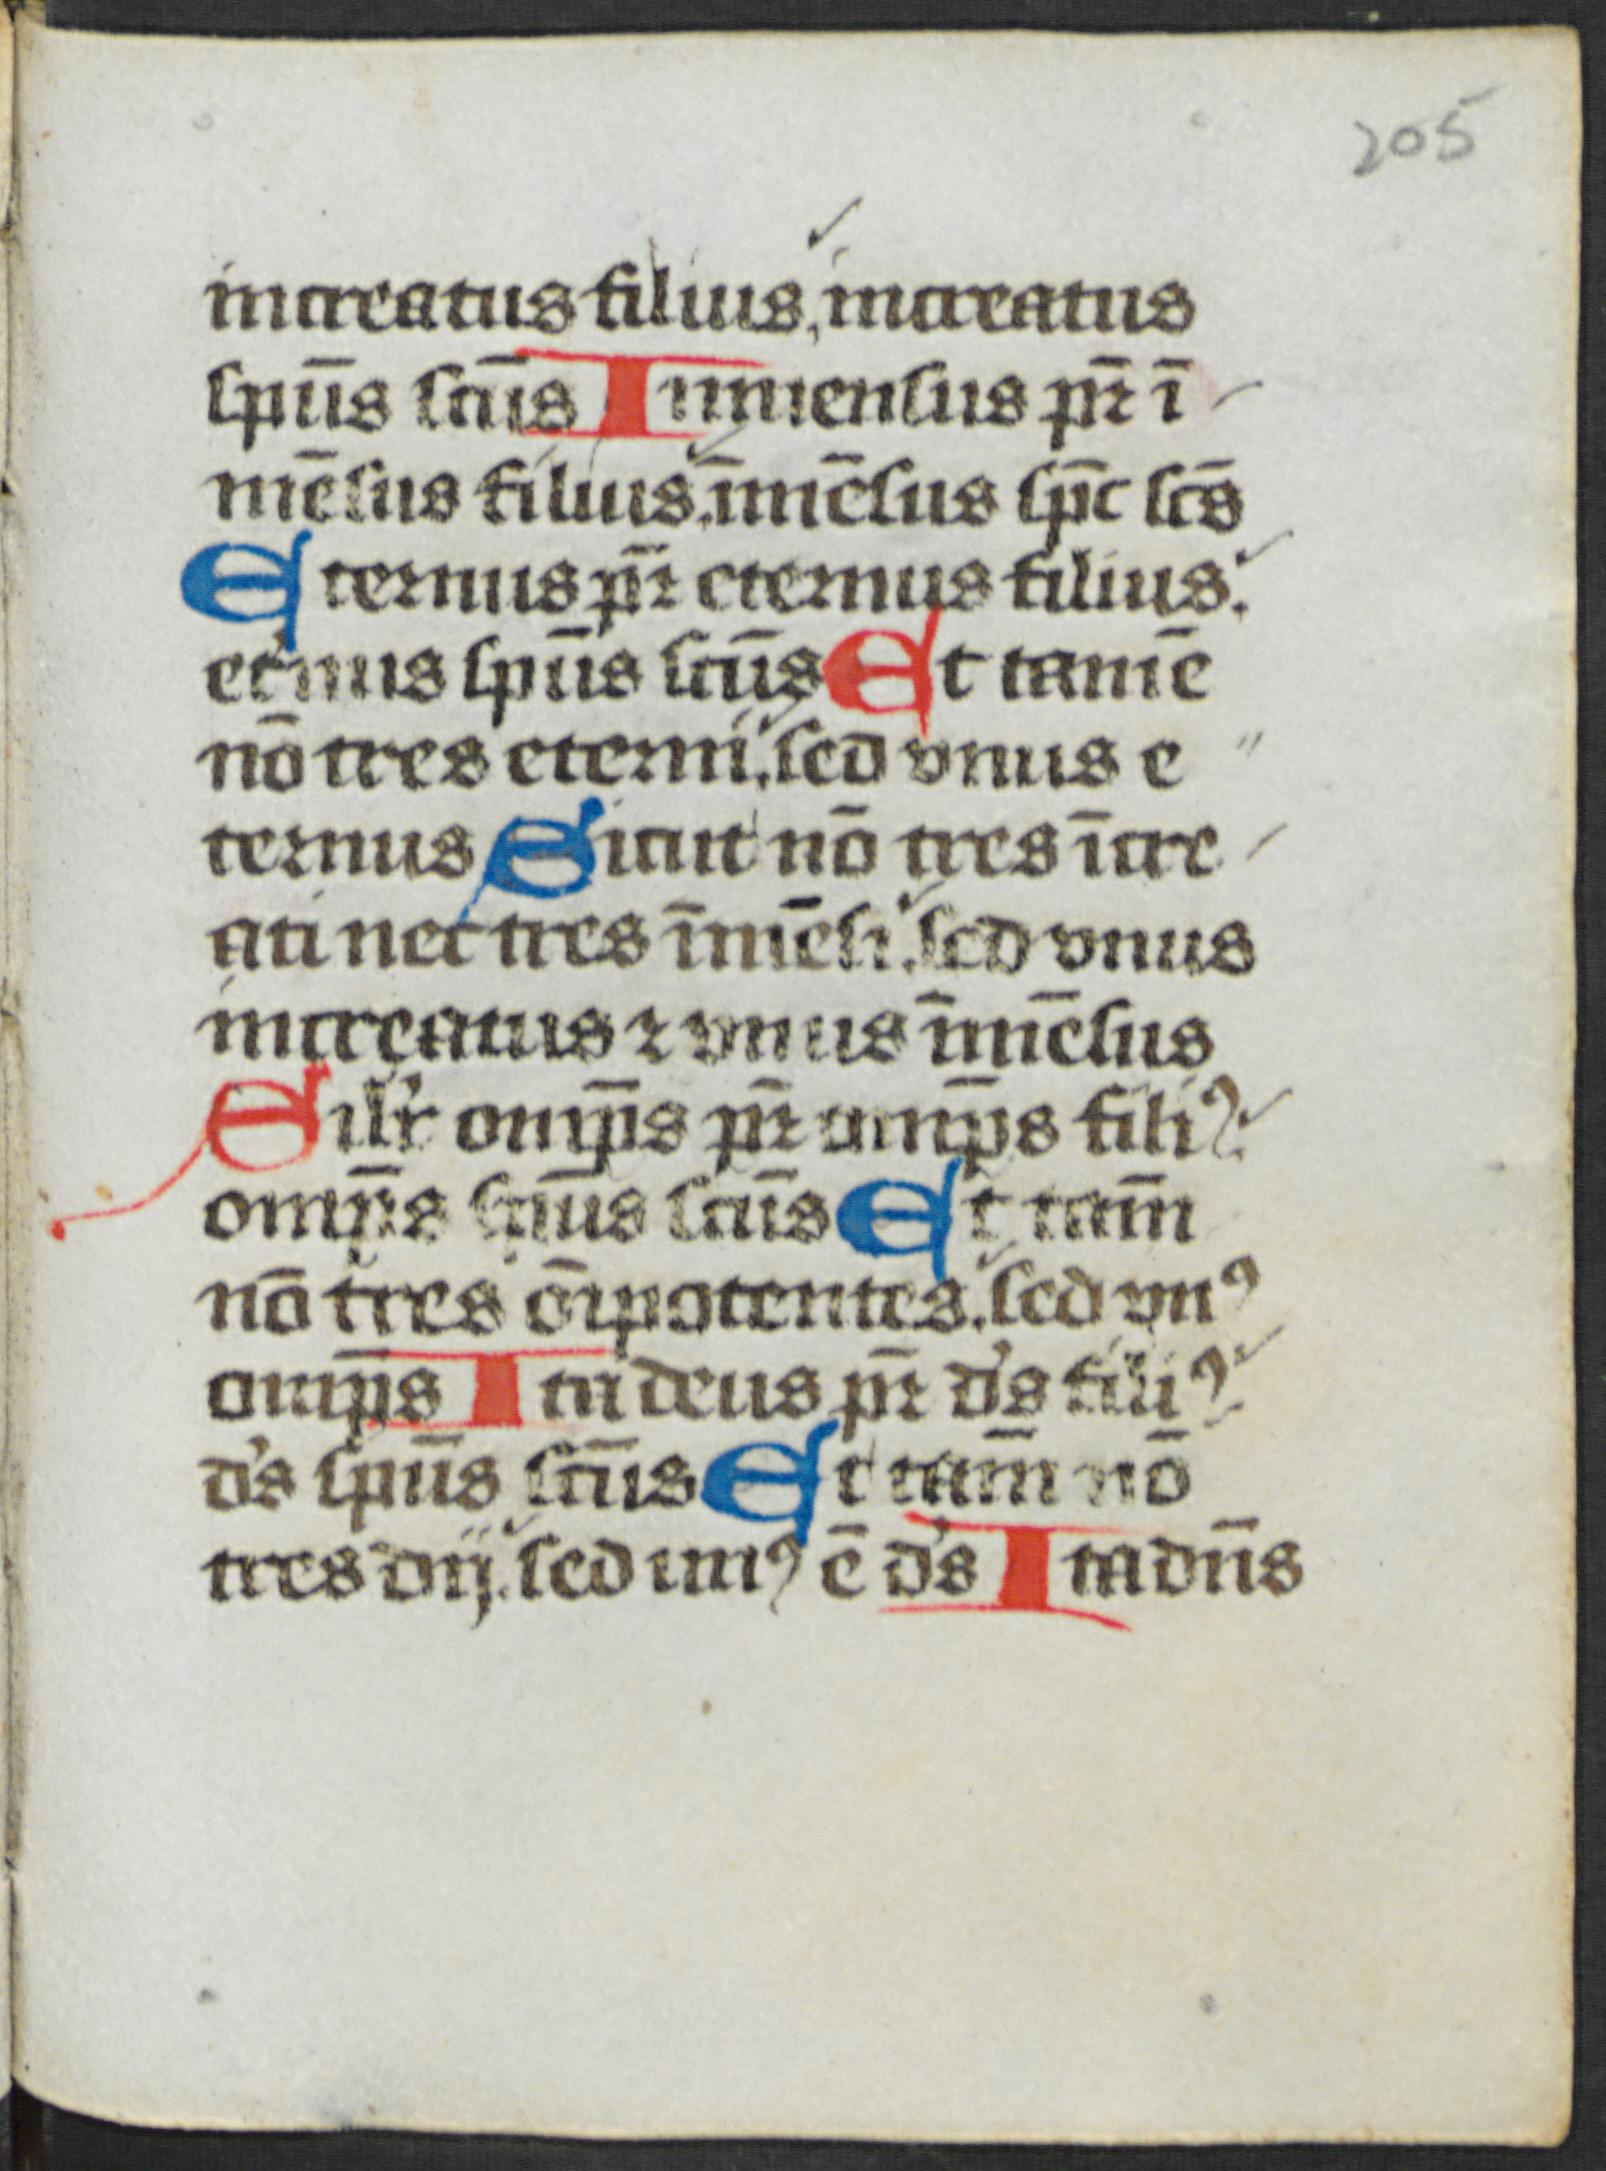 205
increatus filius, increatus
spūs scūs Inmensus pr̄ ī
mēsus filius. īmēsus spc̄ scs̄
Eternus pr̄ eternus filius.
et'nus spūs scūs Et tamē
nō tres eterni. sed vnus e
ternus Sicut nō tres īcre
ati nec tres īmēsi. sed vnus
increatus ⁊ vnus īmēsus
Silr' omp̄s pr̄ omp̄s filiꝰ.
omp̄s spūs scūs Et tam̄
nō tres ōīpotentes. sed vnꝰ
omp̄s Ita deus pr̄ d's filiꝰ.
d's spūs scūs Et tam̄ nō
tres dij. sed unꝰ ē d's Ita dn̄s